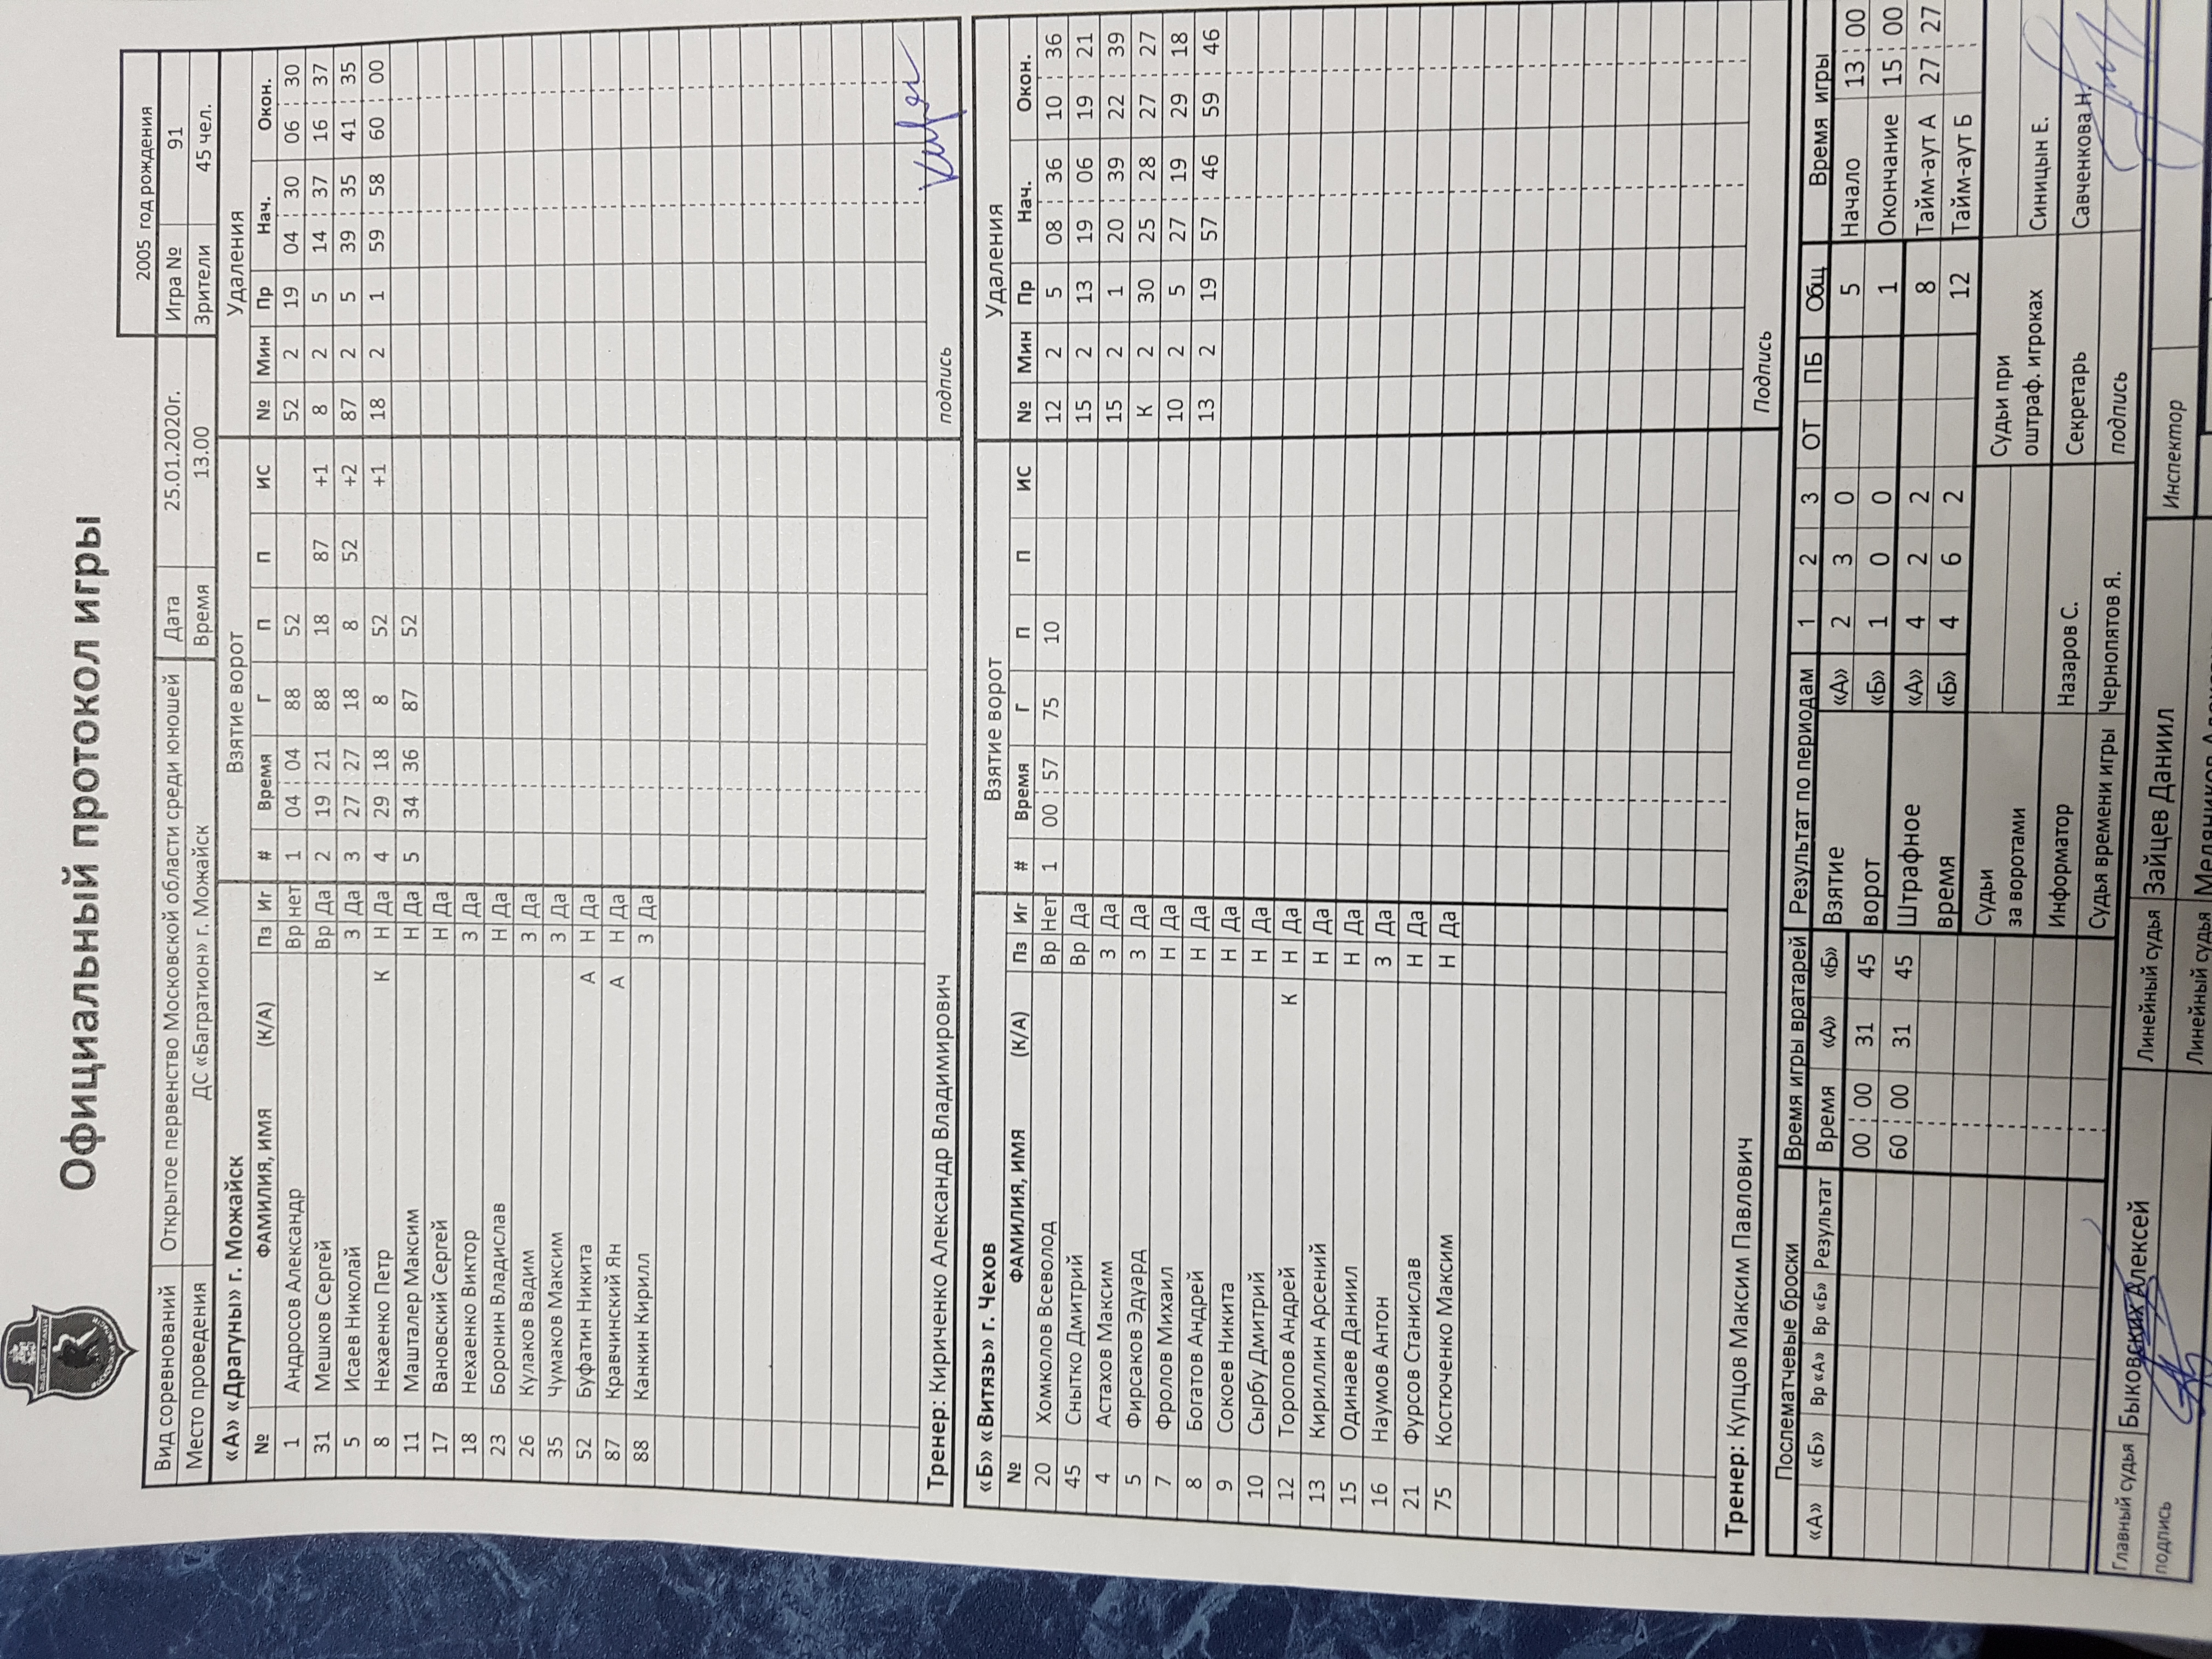 Официальный протокол игры
2005 год рождения
Вид соревнований Открытое первенство Московской области среди юношей Дата 25.01.2020г. Игра № 91
Место проведения ДС «Багратион» г. Можайск Время 13.00 Зрители 45 чел.
«А» «Драгуны» г. Можайск Взятие ворот Удаления
№ ФАМИЛИЯ, ИМЯ (К/А) Пз Иг # Время Г П П ИС № Мин Пр Нач. Окон.
1 Андросов Александр Вр нет 1 04 04 88 52 52 2 19 04 30 06 30
31 Мешков Сергей Вр Да 2 19 21 88 18 87 +1 8 2 5 14 37 16 37
5 Исаев Николай З Да 3 27 27 18 8 52 +2 87 2 5 39 35 41 35
8 Нехаенко Петр К Н Да 4 29 18 8 52 +1 18 2 1 59 58 60 00
11 Машталер Максим Н Да 5 34 36 87 52
17 Вановский Сергей Н Да
18 Нехаенко Виктор З Да
23 Боронин Владислав Н Да
26 Кулаков Вадим З Да
35 Чумаков Максим З Да
52 Буфатин Никита А Н Да
87 Кравчинский Ян А Н Да
88 Канкин Кирилл З Да
Тренер: Кириченко Александр Владимирович подпись
«Б» «Витязь» г. Чехов Взятие ворот Удаления
№ ФАМИЛИЯ, ИМЯ (К/А) Пз Иг # Время Г П П ИС № Мин Пр Нач. Окон.
20 Хомколов Всеволод Вр Нет 1 00 57 75 10 12 2 5 08 36 10 36
45 Снытко Дмитрий Вр Да 15 2 13 19 06 19 21
4 Астахов Максим З Да 15 2 1 20 39 22 39
5 Фирсаков Эдуард З Да К 2 30 25 28 27 27
7 Фролов Михаил Н Да 10 2 5 27 19 29 18
8 Богатов Андрей Н Да 13 2 19 57 46 59 46
9 Сокоев Никита Н Да
10 Сырбу Дмитрий Н Да
12 Торопов Андрей К Н Да
13 Кириллин Арсений Н Да
15 Одинаев Даниил Н Да
16 Наумов Антон З Да
21 Фурсов Станислав Н Да
75 Костюченко Максим Н Да
Тренер: Купцов Максим Павлович Подпись
Послематчевые броски Время игры вратарей Результат по периодам 1 2 3 ОТ ПБ Общ Время игры
«А» «Б» Вр «А» Вр «Б» Результат Время «А» «Б» Взятие «А» 2 3 0 5 Начало 13 00
00 00 31 45 ворот «Б» 1 0 0 1 Окончание 15 00
60 00 31 45 Штрафное «А» 4 2 2 8 Тайм-аут А 27 27
время «Б» 4 6 2 12 Тайм-аут Б
Судьи Судьи при
за воротами оштраф. игроках Синицын Е.
Информатор Назаров С. Секретарь Савченкова Н.
Судья времени игры Чернопятов Я. подпись
Главный судья Быковских Алексей Линейный судья Зайцев Даниил Инспектор
подпись Линейный судья